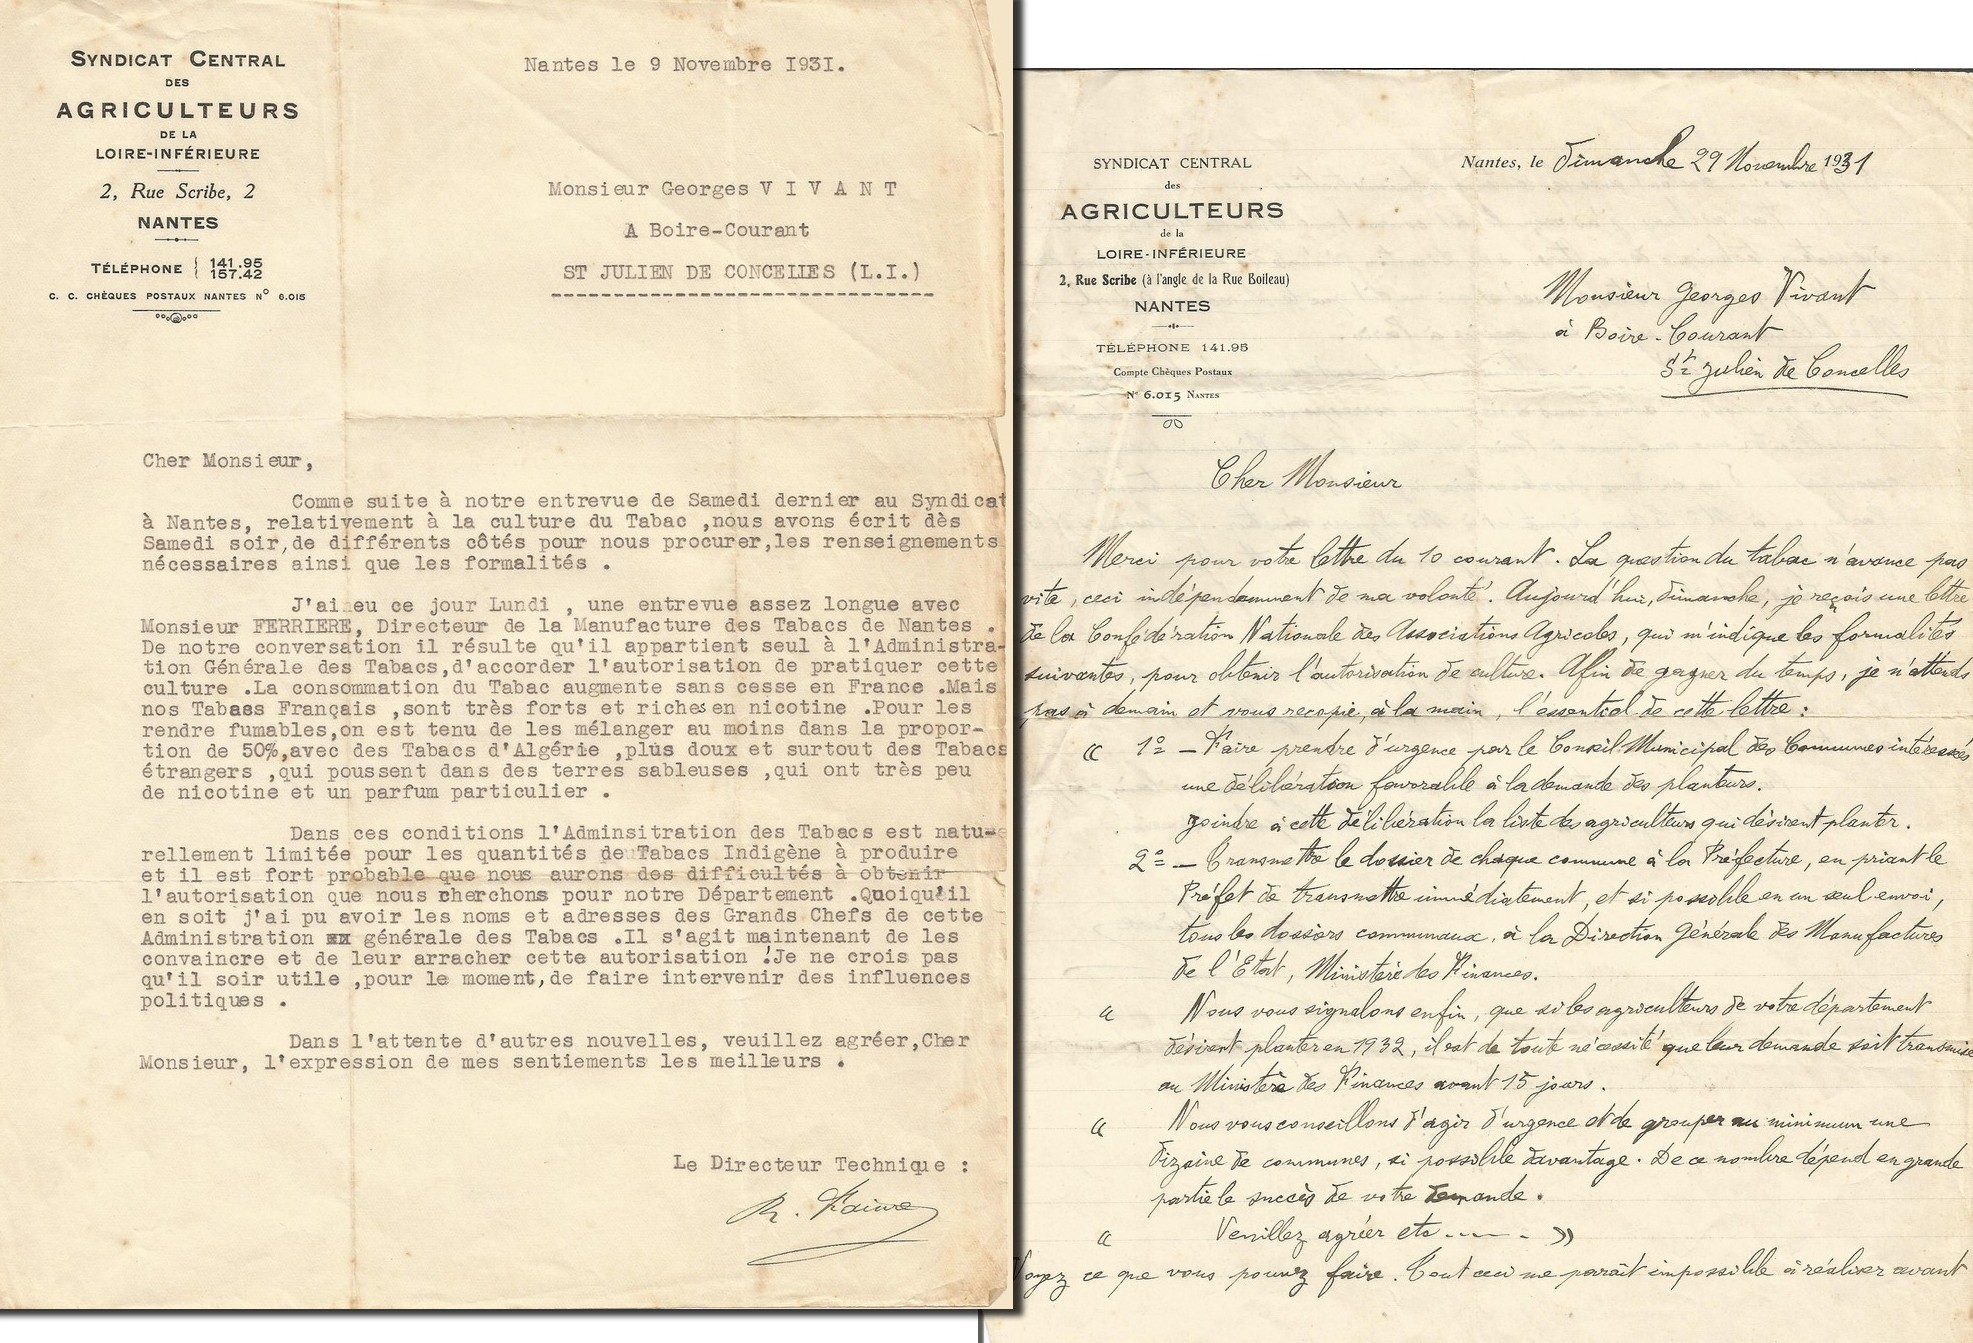 SYNDICAT CENTRAL
DES
AGRICULTEURS
DE LA
LOIRE-INFÉRIEURE
2, Rue Scribe, 2
NANTES
TÉLÉPHONE { 141.95
157.42
C. C. CHÈQUES POSTAUX NANTES No 6.015
Nantes le 9 Novembre I93I.
Monsieur Georges V I V A N T
A Boire-Courant
ST JULIEN DE CONCELLES (L.I.)
Cher Monsieur,
Comme suite à notre entrevue de Samedi dernier au Syndicat
à Nantes, relativement à la culture du Tabac ,nous avons écrit dès
Samedi soir,de différents côtés pour nous procurer,les renseignements
nécessaires ainsi que les formalités .
J'ai eu ce jour Lundi , une entrevue assez longue avec
Monsieur FERRIERE, Directeur de la Manufacture des Tabacs de Nantes .
De notre conversation il résulte qu'il appartient seul à l'Administra-
tion Générale des Tabacs,d'accorder l'autorisation de pratiquer cette
culture .La consommation du Tabac augmente sans cesse en France .Mais
nos Tabacs Français ,sont très forts et riches en nicotine .Pour les
rendre fumables,on est tenu de les mélanger au moins dans la propor-
tion de 50%,avec des Tabacs d'Algérie ,plus doux et surtout des Tabacs
étrangers ,qui poussent dans des terres sableuses ,qui ont très peu
de nicotine et un parfum particulier .
Dans ces conditions l'Adminsitration des Tabacs est natu-
rellement limitée pour les quantités de Tabacs Indigène à produire
et il est fort probable que nous aurons des difficultés à obtenir
l'autorisation que nous cherchons pour notre Département .Quoiqu'il
en soit j'ai pu avoir les noms et adresses des Grands Chefs de cette
Administration xx générale des Tabacs .Il s'agit maintenant de les
convaincre et de leur arracher cette autorisation !Je ne crois pas
qu'il soir utile ,pour le moment,de faire intervenir des influences
politiques .
Dans l'attente d'autres nouvelles, veuillez agréer,Cher
Monsieur, l'expression de mes sentiements les meilleurs .
Le Directeur Technique :
R. Faivre
SYNDICAT CENTRAL
des
AGRICULTEURS
de la
LOIRE-INFÉRIEURE
2, Rue Scribe (à l'angle de la Rue Boileau)
NANTES
TÉLÉPHONE 141.95
Compte Chèques Postaux
No 6.015 NANTES
Nantes, le dimanche 29 Novembre 1931
Monsieur Georges Vivant
à Boire-Courant
St Julien de Concelles
Cher Monsieur
Merci pour votre lettre du 10 courant. La question du tabac n'avance pas
vite, ceci indépendamment de ma volonté. Aujourd'hui, dimanche, je reçois une lettre
de la Confédération Nationale des Associations Agricoles, qui m'indique les formalités
suivantes, pour obtenir l'autorisation de culture. Afin de gagner du temps, je n'attends
pas à demain et vous recopie, à la main, l'essentiel de cette lettre :
« 1º - Faire prendre d'urgence par le Conseil Municipal des Communes intéressées
une délibération favorable à la demande des planteurs.
Joindre à cette délibération la liste des agriculteurs qui désirent planter.
2º - Transmettre le dossier de chaque commune à la Préfecture, en priant le
Préfet de transmettre immédiatement, et si possible en un seul envoi,
tous les dossiers communaux, à la Direction Générale des Manufactures
de l'Etat, Ministère des Finances.
« Nous vous signalons enfin, que si les agriculteurs de votre département
désirent planter en 1932, il est de toute nécessité que leur demande soit transmise
au Ministère des Finances avant 15 jours.
« Nous vous conseillons d'agir d'urgence et de grouper au minimum une
dizaine de communes, si possible davantage. De ce nombre dépend en grande
partie le succès de votre demande.
« Veuillez agréer etc ..... »
Voyez ce que vous pouvez faire. Tout ceci me paraît impossible à réaliser avant